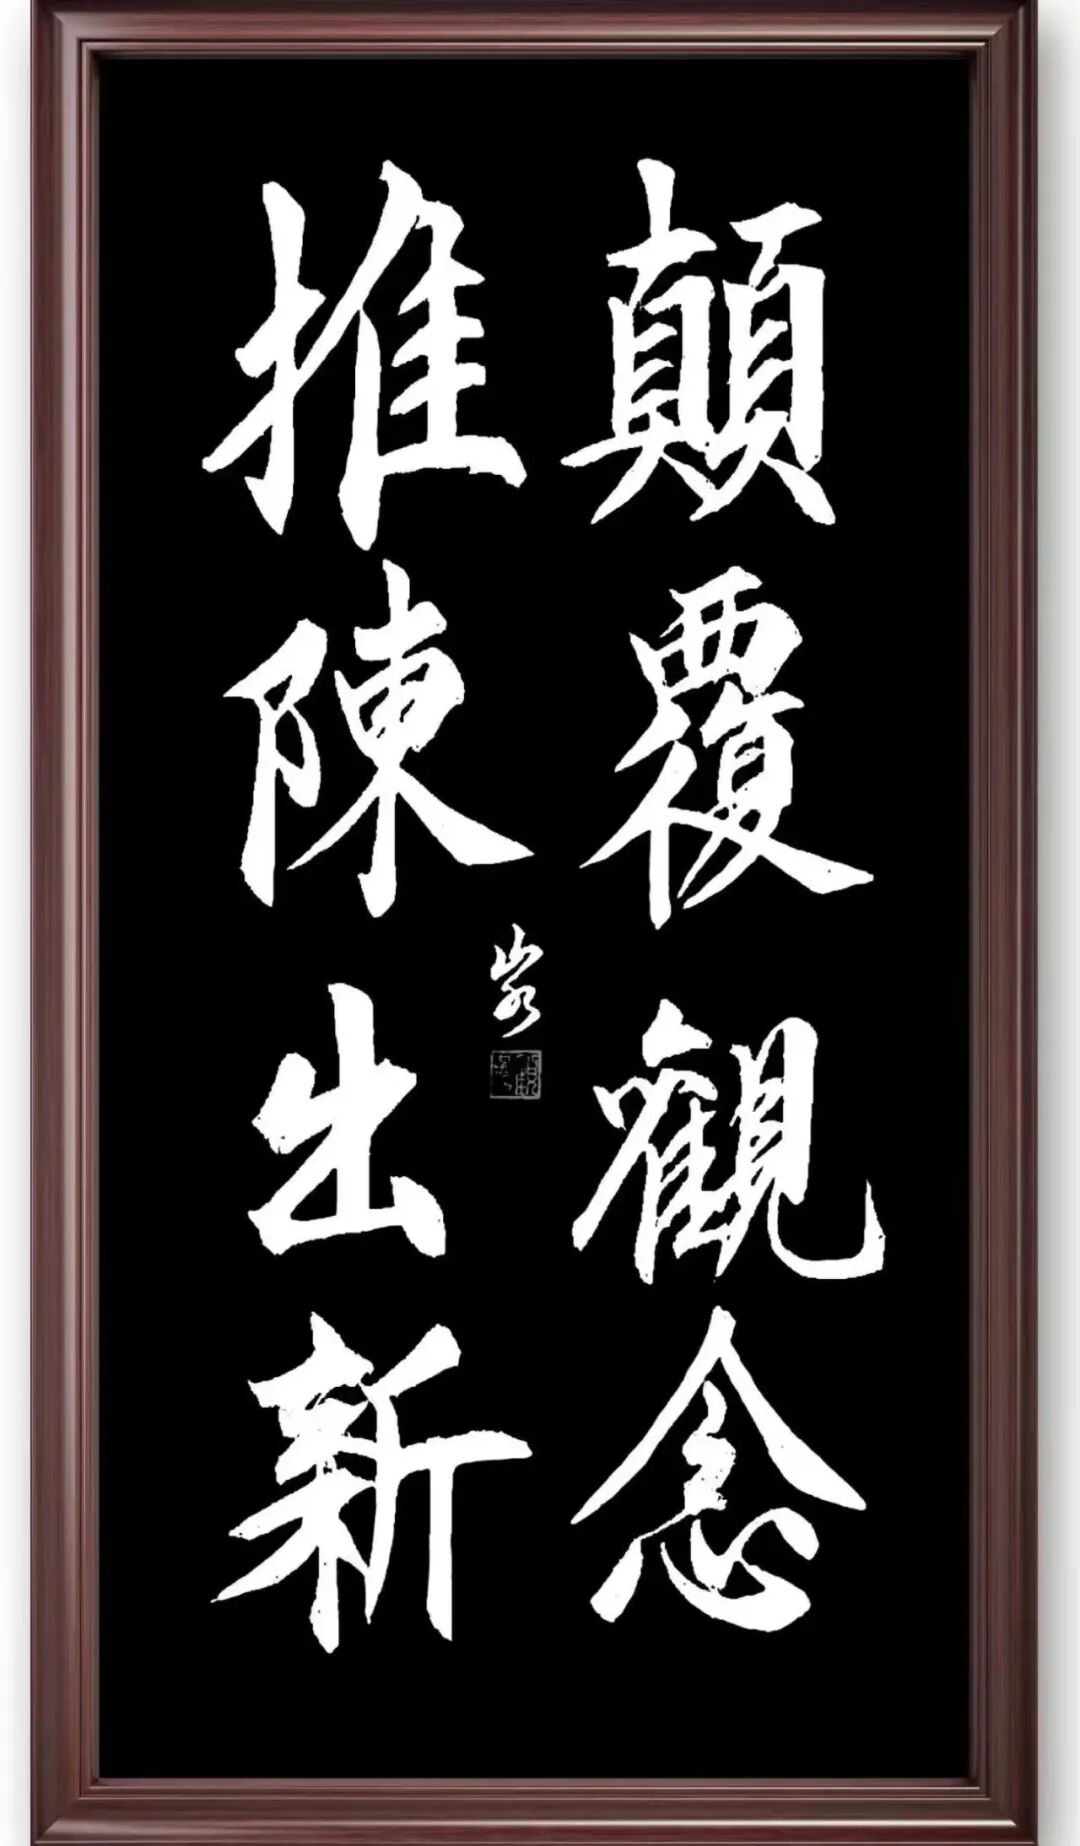 顛覆觀念
推陳出新